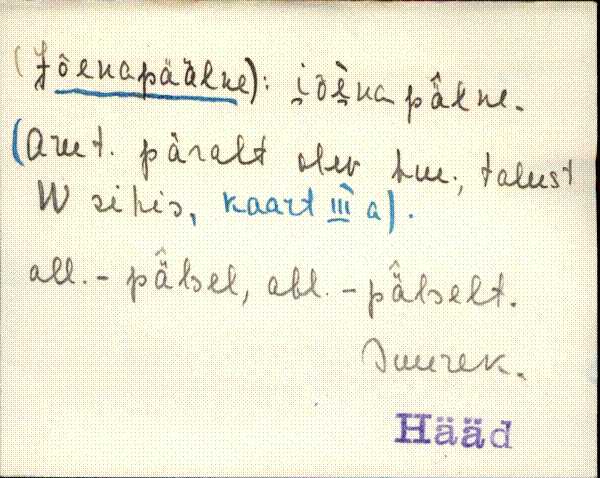 (Jõenapäälne): i̮õ̭ènapä̂lne.
(Amet. päralt olev hm., talust
W sihis, kaart III a).
all. - pä̂lsel, abl. - pä̂lselt.
Suurek.
Hääd